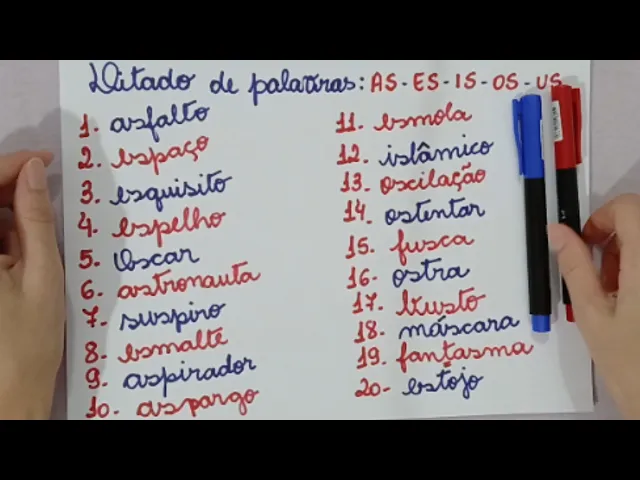 Ditado de palavras: AS - ES - IS - OS - US
1. asfalto
2. espaço
3. esquisito
4. espelho
5. Oscar
6. astronauta
7. suspiro
8. esmalte
9. aspirador
10. aspargo
11. esmola
12. islâmico
13. oscilação
14. ostentar
15. fusca
16. ostra
17. susto
18. máscara
19. fantasma
20. estojo